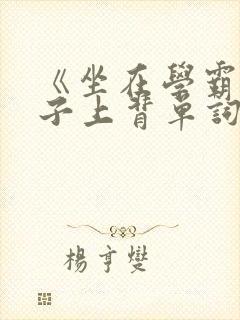 《坐在學霸
子上背單詞
楊亨燮